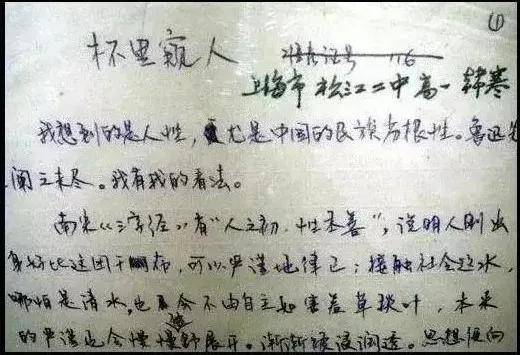 ①
杯里窥人
准考证号 116
上海市松江二中高一 韩寒
我想到的是人性，尤是中国的民族劣根性。鲁迅先
阐之未尽。我有我的看法。
南宋《三字经》有“人之初，性本善”，说明人刚出
身好比这团干布，可以严谨地律己；接触社会这水，
哪怕是清水，也会不由自主如害羞草叶，本来
的严谨也会慢慢地舒展开，渐渐被浸润透。思想便向